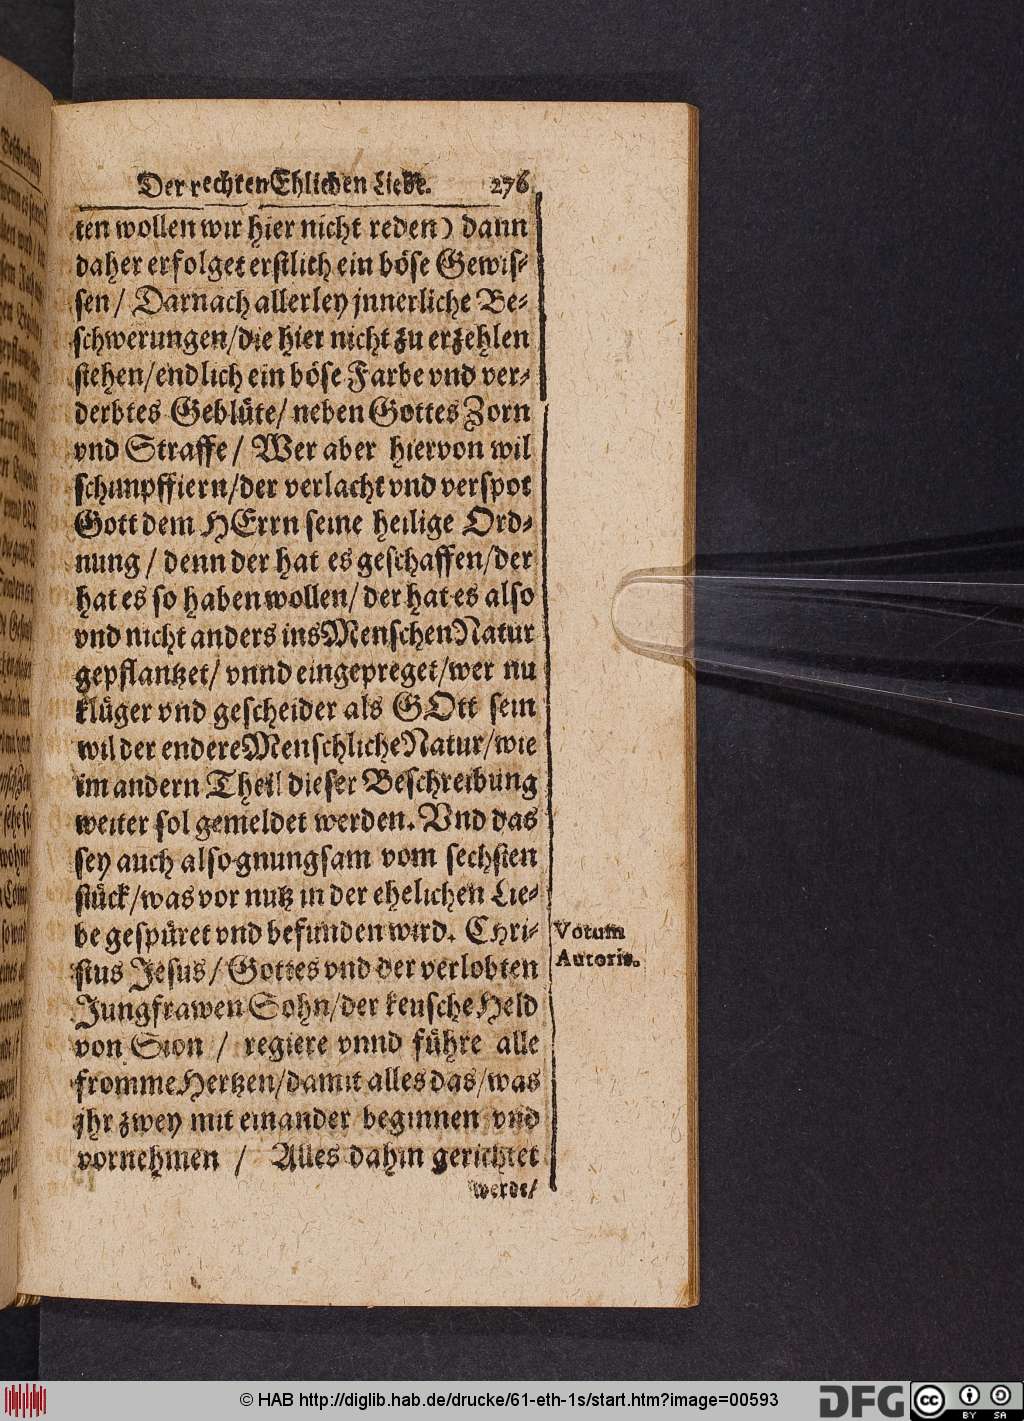 Der rechten Ehlichen Liebe. 276
ten wollen wir hier nicht reden) dann
daher erfolget erstlich ein böse Gewis-
sen / Darnach allerley jnnerliche Be-
schwerungen/die hier nicht zu erzehlen
stehen/endlich ein böse Farbe vnd ver-
derbtes Geblüte/ neben Gottes Zorn
vnd Straffe / Wer aber hiervon wil
schimpffiern/der verlacht vnd verspot
Gott dem HErrn seine heilige Ord-
nung / denn der hat es geschaffen/der
hat es so haben wollen/ der hat es also
vnd nicht anders ins Menschen Natur
gepflantzet/ vnnd eingepreget/wer nu
klüger vnd gescheider als GOtt sein
wil der endere Menschliche Natur/wie
im andern Theil dieser Beschreibung
weiter sol gemeldet werden. Vnd das
sey auch also gnungsam vom sechsten
stück/was vor nutz in der ehelichen Lie-
be gespüret vnd befunden wird. Chri-
stus Jesus/ Gottes vnd der verlobten
Jungfrawen Sohn/der keusche Held
von Sion / regiere vnnd führe alle
fromme Hertzen/damit alles das/was
jhr zwey mit einander beginnen vnd
vornehmen / Alles dahin gerichtet
werde/
Votum
Autoris.
© HAB http://diglib.hab.de/drucke/61-eth-1s/start.htm?image=00593
DFG
cc BY SA